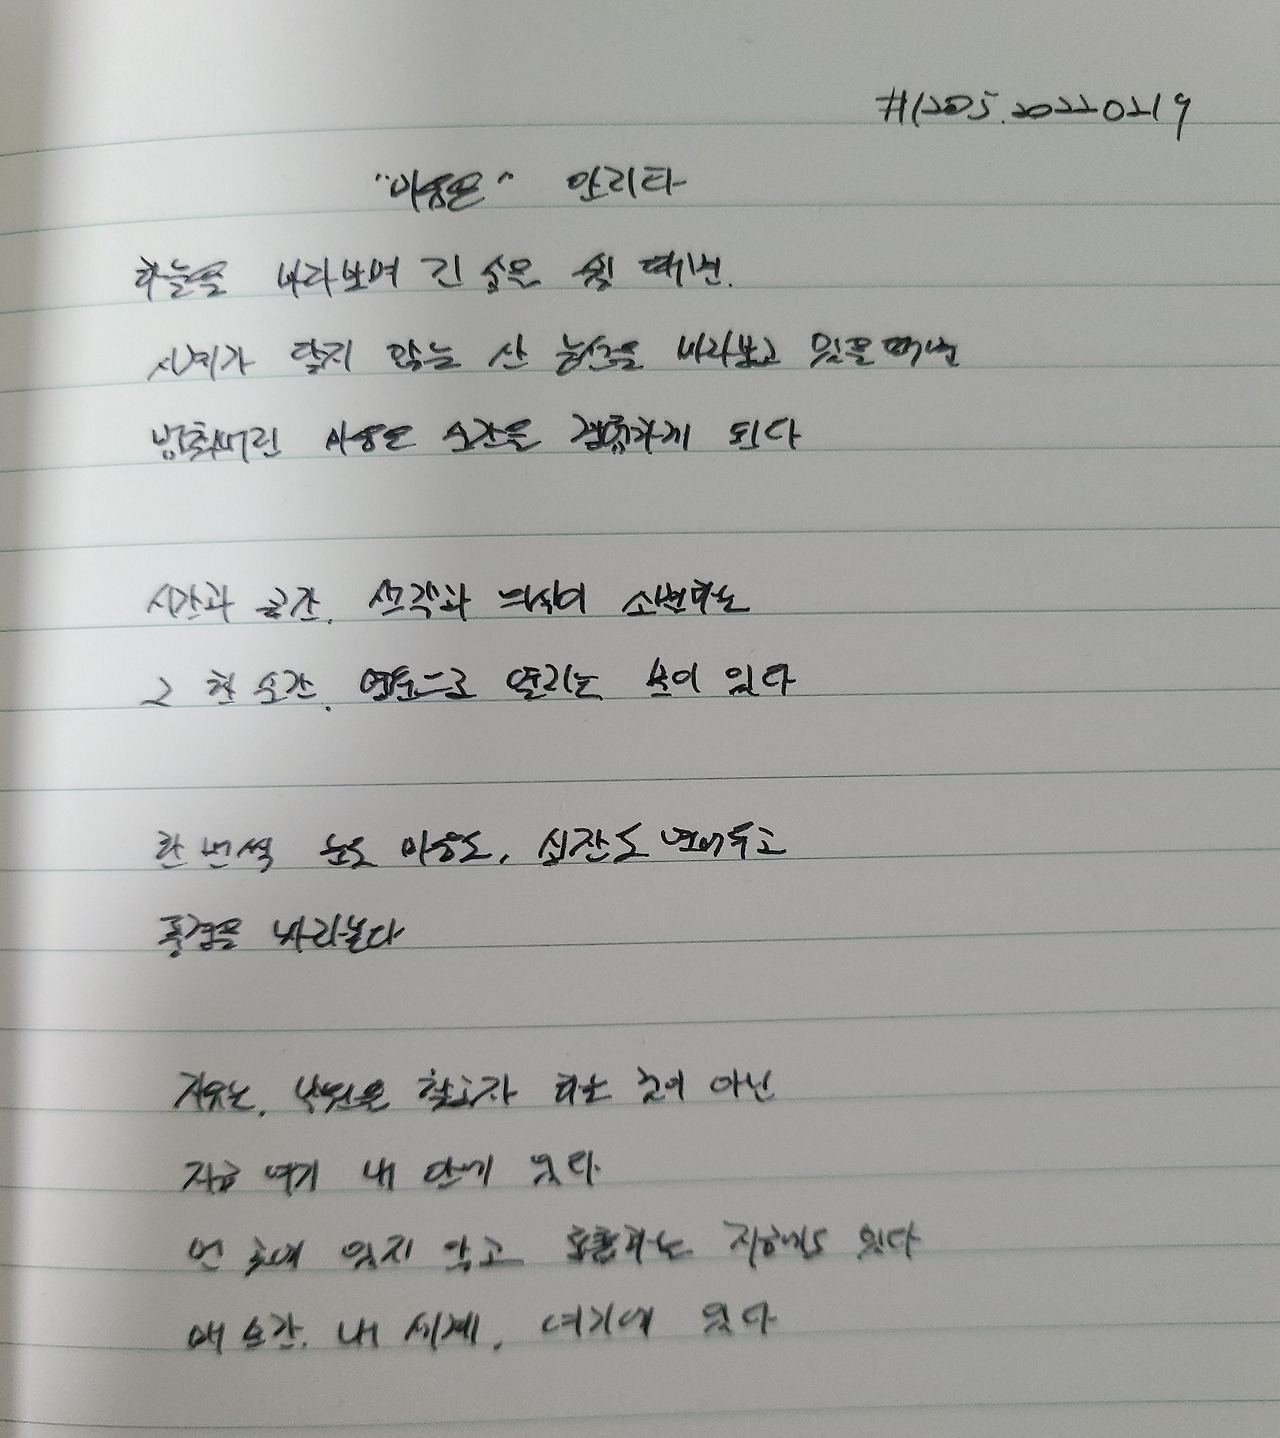 #1205. 20220219
"마음은" 안리타
하늘을 바라보며 긴 숨을 쉴 때면.
시계가 닿지 않는 산 능선을 바라보고 있을때면
멈춰버린 마음은 순간을 경험하게 되다
시간과 공간. 생각과 의식이 소멸하는
그 한 순간. 영원으로 열리는 문이 있다
한 번씩 눈도 마음도, 심장도 떼어두고
풍경을 바라본다
자유는. 낙원을 찾고자 하는 것이 아닌
지금 여기 내 안에 있다.
먼 곳에 있지 않고 호흡하는 지금에도 있다
매 순간. 내 세계, 여기에 있다